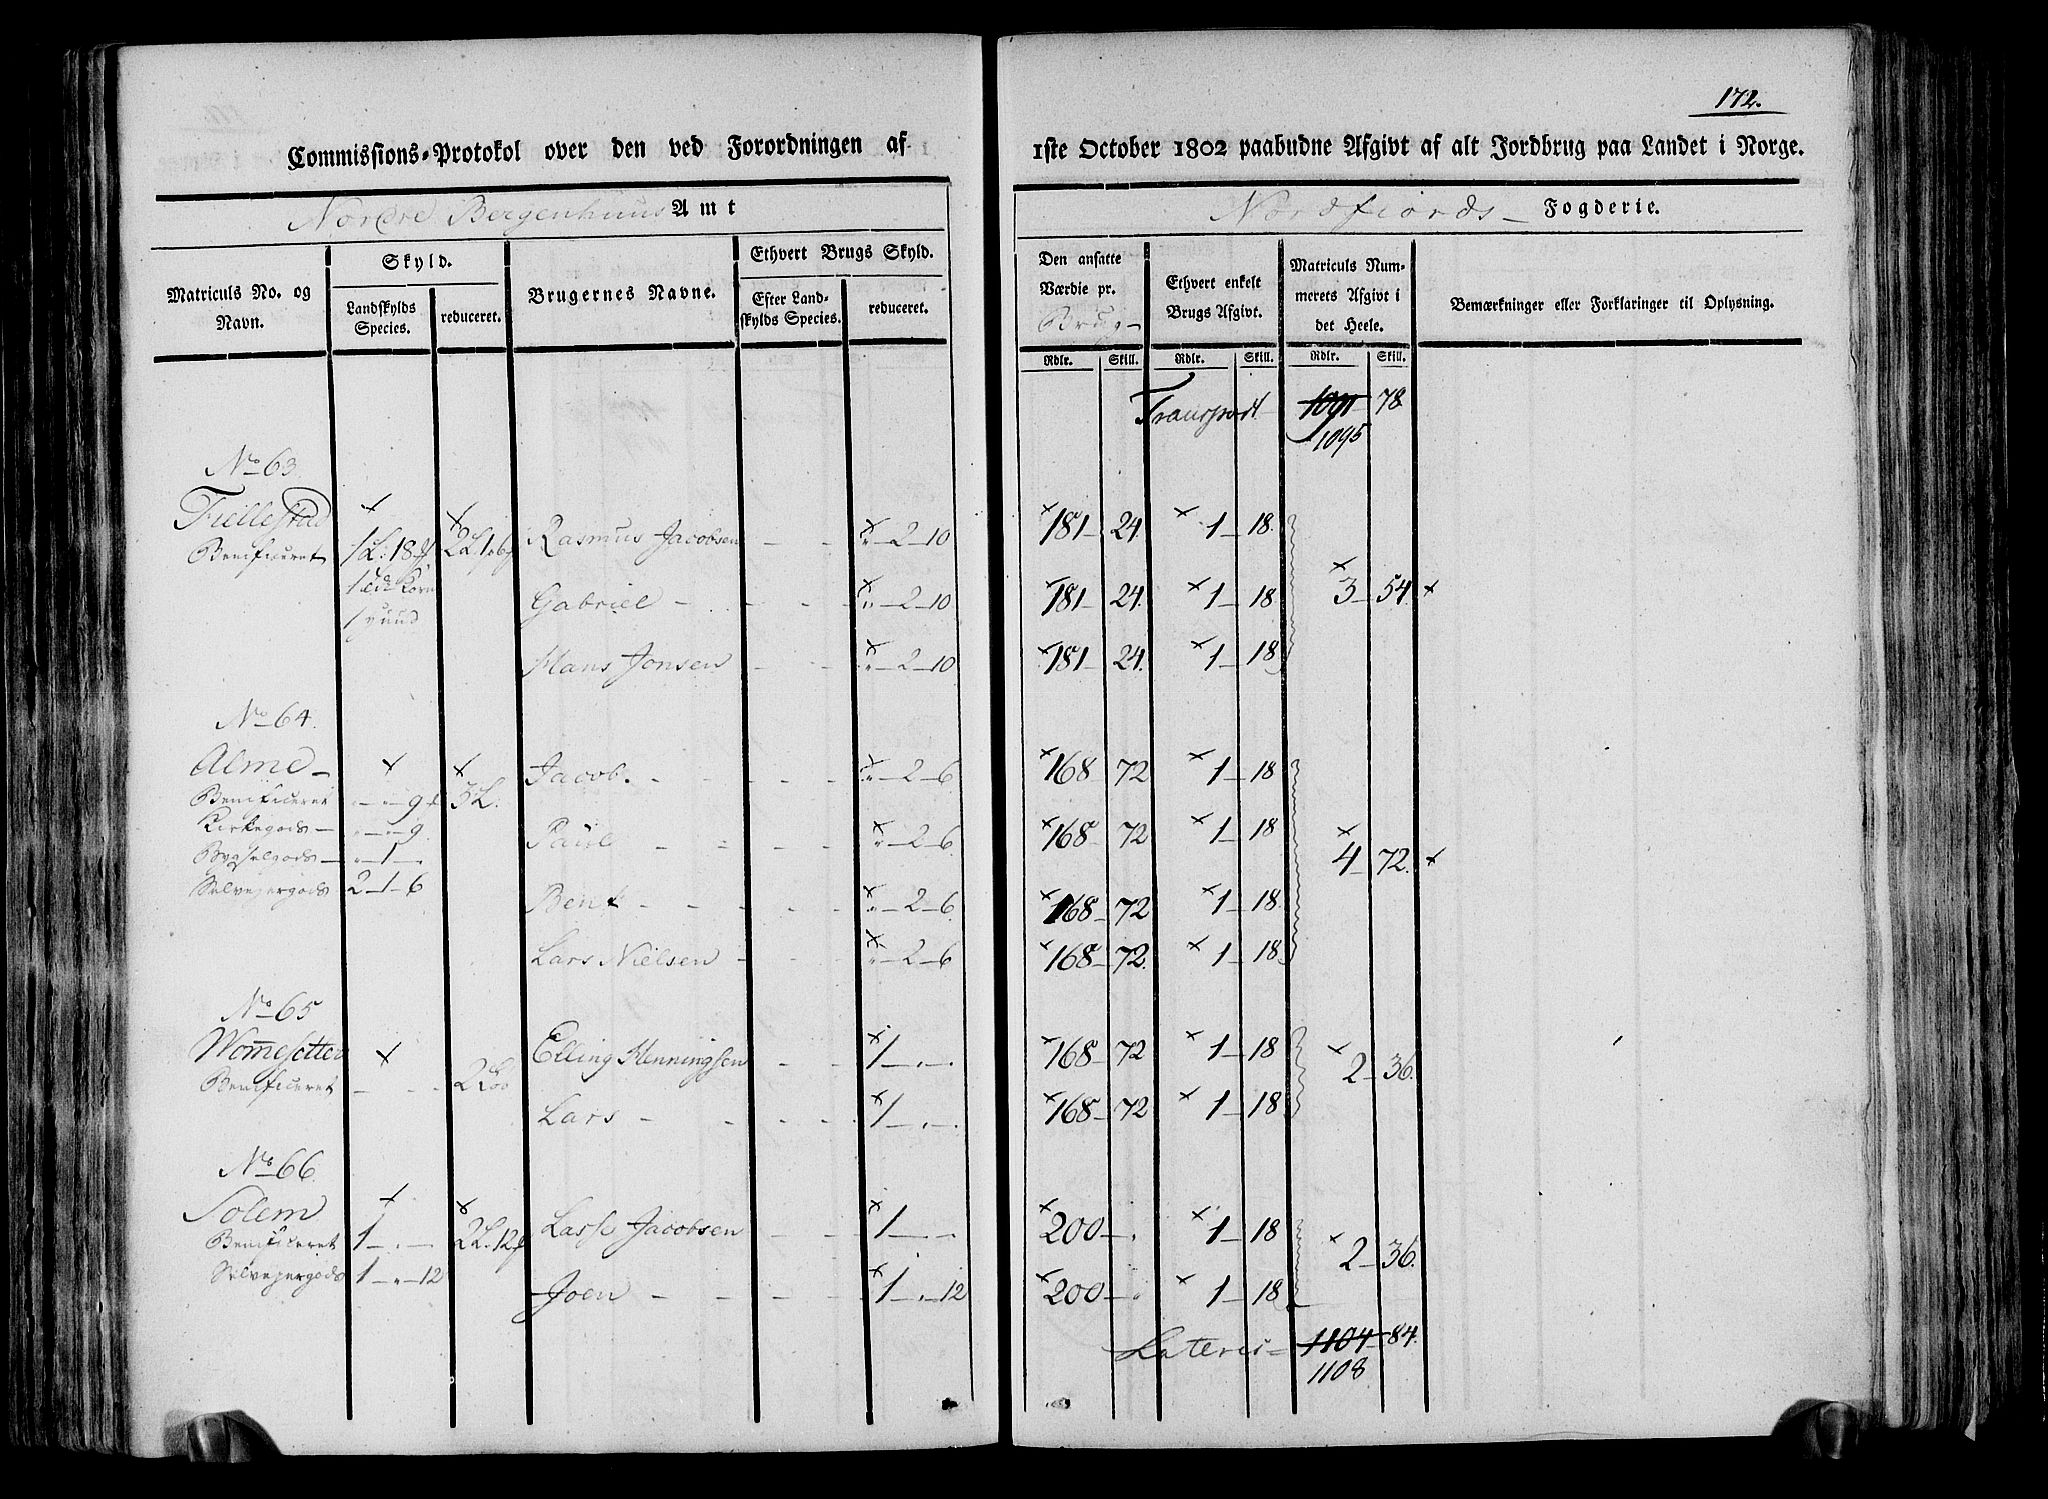 172.
Commissions-Protokol over den ved Forordningen af 1ste October 1802 paabudne Afgivt af alt Jordbrug paa Landet i Norge.
Nordre Bergenhuus Amt
Nordfiords Fogderie.
Matriculs No. og Navn.
Skyld.
Landskylds Species.
reduceret.
Brugernes Navne.
Ethvert Brugs Skyld.
Efter Landskylds Species.
reduceret.
Den ansatte Værdie pr. Brug
Ethvert enkelt Brugs Afgivt.
Matriculs Nummerets Afgivt i det Heele.
Bemærkninger eller Forklaringer til Oplysning.
Rdlr. Skill. Rdlr. Skill. Rdlr. Skill.
Transport 1091 78
1095
No 63
Fiellestad
Beneficeret 1 L: 18 Rasmus Jacobsen - - " 2 10 181 24. 1 18.
Gabriel - - - " 2 10 181 24. 1 18. 3 54.
Hans Jonsen - - " 2 10 181 24. 1 18
No 64.
Alme
Beneficeret - " 9 3 L. Jacob. - - - " 2 6 168 72 1 18
Kirkegods - " 9. Paul - - - " 2 6. 168 72 1 18 4 72.
Bygselgods - " 1 -
Selveyergods 2 1 6 Bent - - - " 2 6. 168 72 1 18.
Lars Nielsen - - " 2 6 168 72. 1 18
No 65
Womesetter Elling Henningsen - - 1 - - 168 72 1 18 2 36.
Beneficeret - - - 2
Lars - - - 1 - - 168 72 1 18
No 66.
Solem
Beneficeret 1 - - 2 L. 12 Lasse Jacobsen - - 1 - - 200 - 1 18 2 36.
Selveyergods 1 - " 12 Joen - - - 1 - 12 200 - 1 18
Lateris 1104 84.
1108